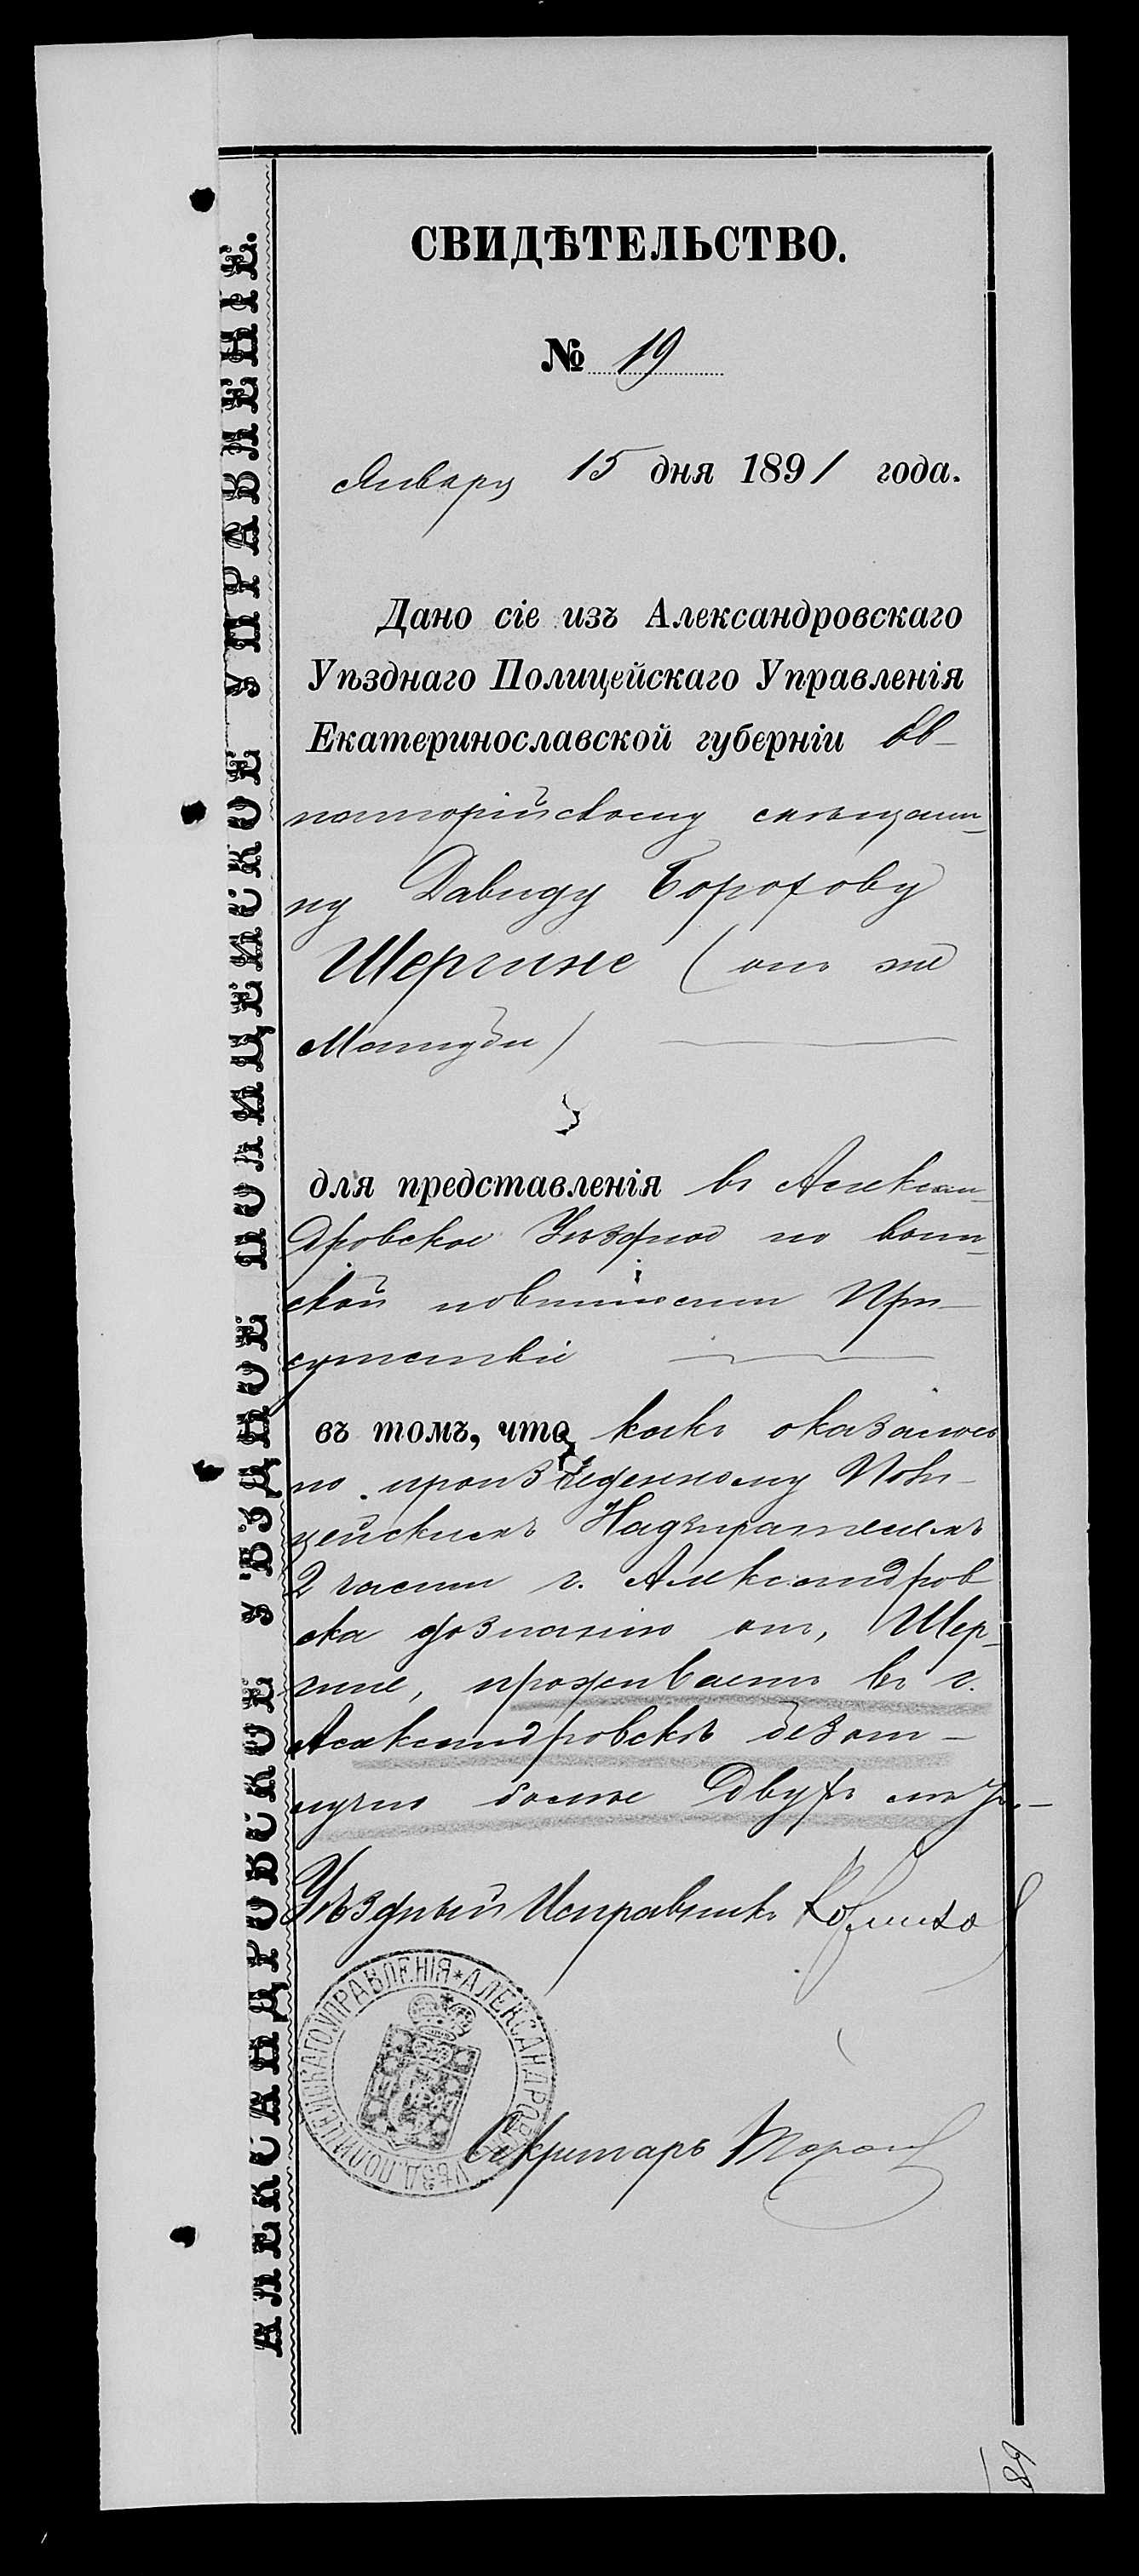 АЛЕКСАНДРОВСКОЕ УѢЗДНОЕ ПОЛИЦЕЙСКОЕ УПРАВЛЕНІЕ.
СВИДѢТЕЛЬСТВО.
№ 19
Января 15 дня 1891 года.
Дано сіе изъ Александровскаго
Уѣзднаго Полицейскаго Управленія
Екатеринославской губерніи Ев-
паторійскому мѣщани-
ну Давиду Борохову
(онъ же
для представленія въ Алексан-
дровское Уѣздное по воин-
ской повинности При-
сутствіе
въ томъ, что какъ оказалось
по произведенному Поли-
цейскимъ Надзирателемъ
2 части г. Александров
ска дознанію онъ, Шер-
проживаетъ въ г.
Александровскѣ безот-
лучно болѣе двухъ лѣтъ.—
Уѣздный Исправникъ
Секретарь
АЛЕКСАНДРОВ УѢЗД. ПОЛИЦЕЙСКАГО УПРАВЛЕНІЯ
89